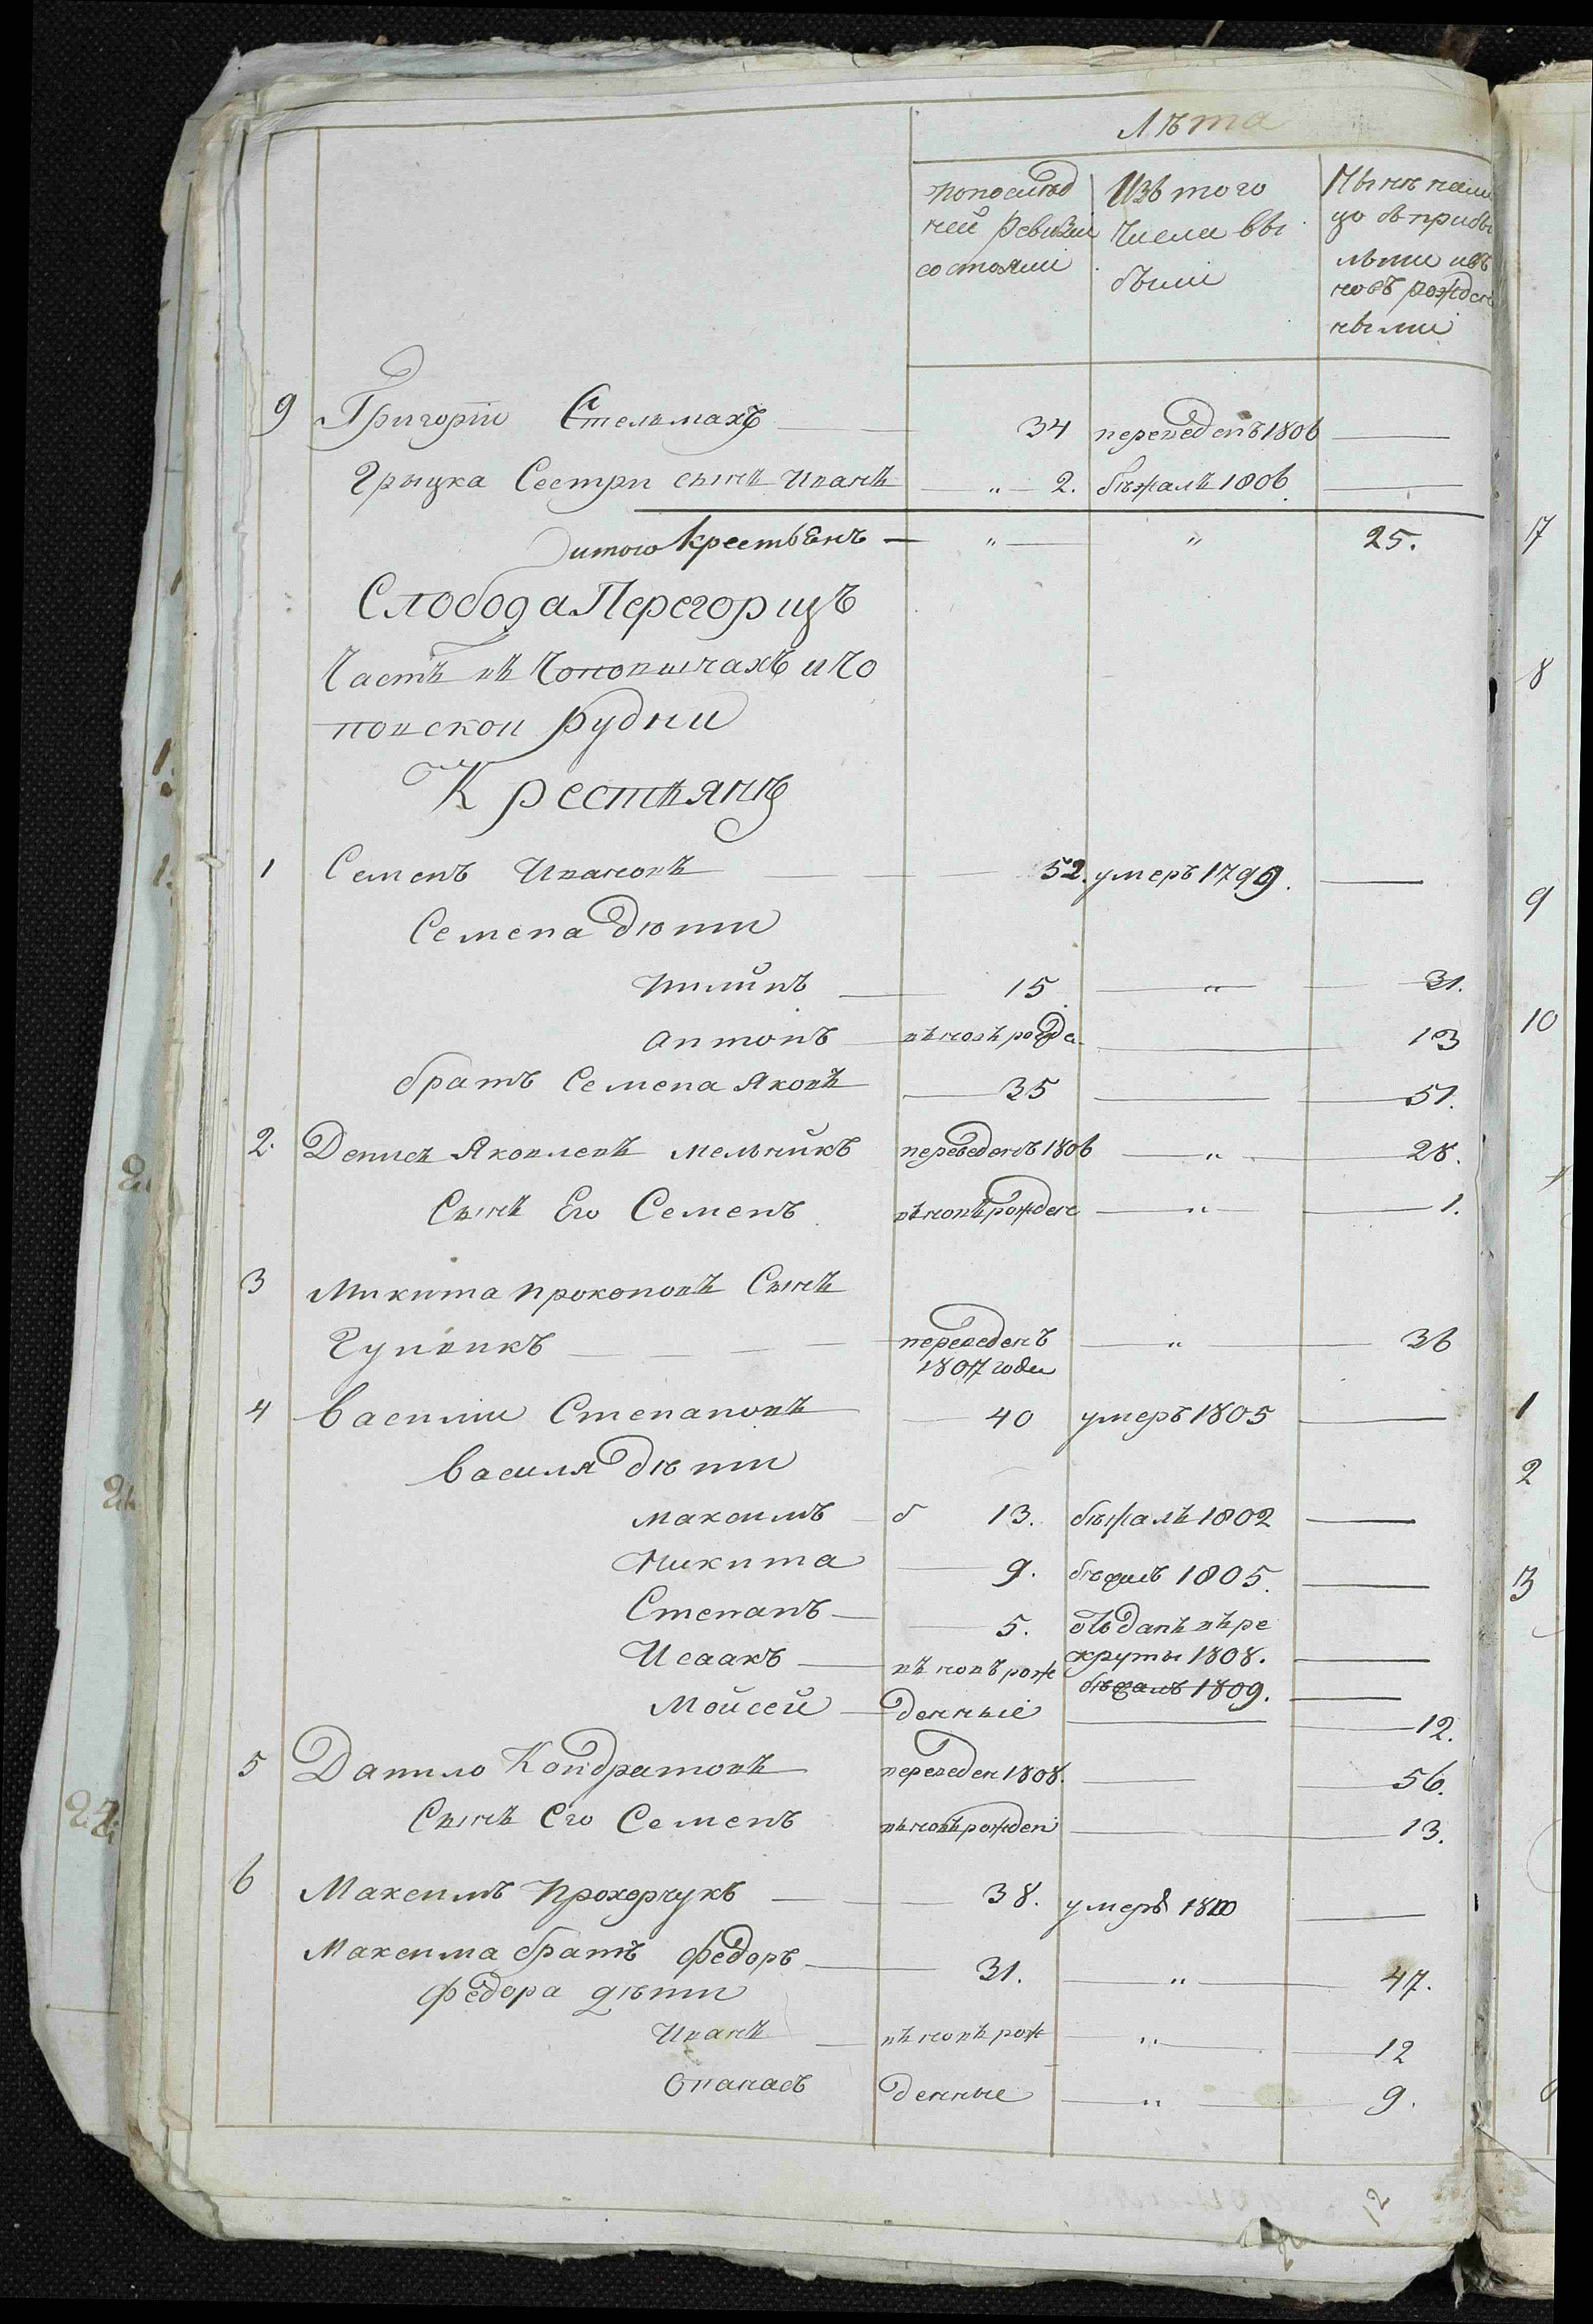 Лѣта
попослѣд
ней Ревизіи
состояли
Изъ того
Числа вы
были
Нынѣ нали
цо съ прибы
лыми изъ
новъ рожден
ными
9 Григорій Стельмахъ 34 переведенъ 1806
Грыцка Сестри сынъ Иванъ 2. бѣжалъ 1806
итого крестьянъ 25.
Слобода Перегорщъ
Часть въ
повской Рудни
Крестьянъ
1 Семенъ Ивановъ 52. умеръ 1799.
Семена дѣти
Пилипъ 15 31.
Антонъ въновъ рожде 13
братъ Семена Яковъ 35 51.
2. Денисъ Яковлевъ мельникъ переведенъ 1806 28.
Сынъ Его Семенъ въновъ рожден 1.
3 Микита прокоповъ Сынъ
переведенъ 36
1807 годи
4 Василии Степановъ 40 умеръ 1805
Василя дѣти
максимъ 13. бѣжалъ 1802
Микита 9. бѣжалъ 1805.
Степанъ 5. отъданъ въ ре
Исаакъ въ новъ рож круты 1808.
бѣжалъ 1809.
Мойсей денные 12.
5 Данило Кондратовъ переведен 1808. 56.
Сынъ Его Семенъ въновърожден 13.
6 Максимъ Прохорчукъ 38. умеръ 1810
Максима братъ федоръ 31. 47.
федора дѣти
Иванъ въ новъ рож 12
Опанасъ денные 9.
12
7
8
9
10
1
2
3